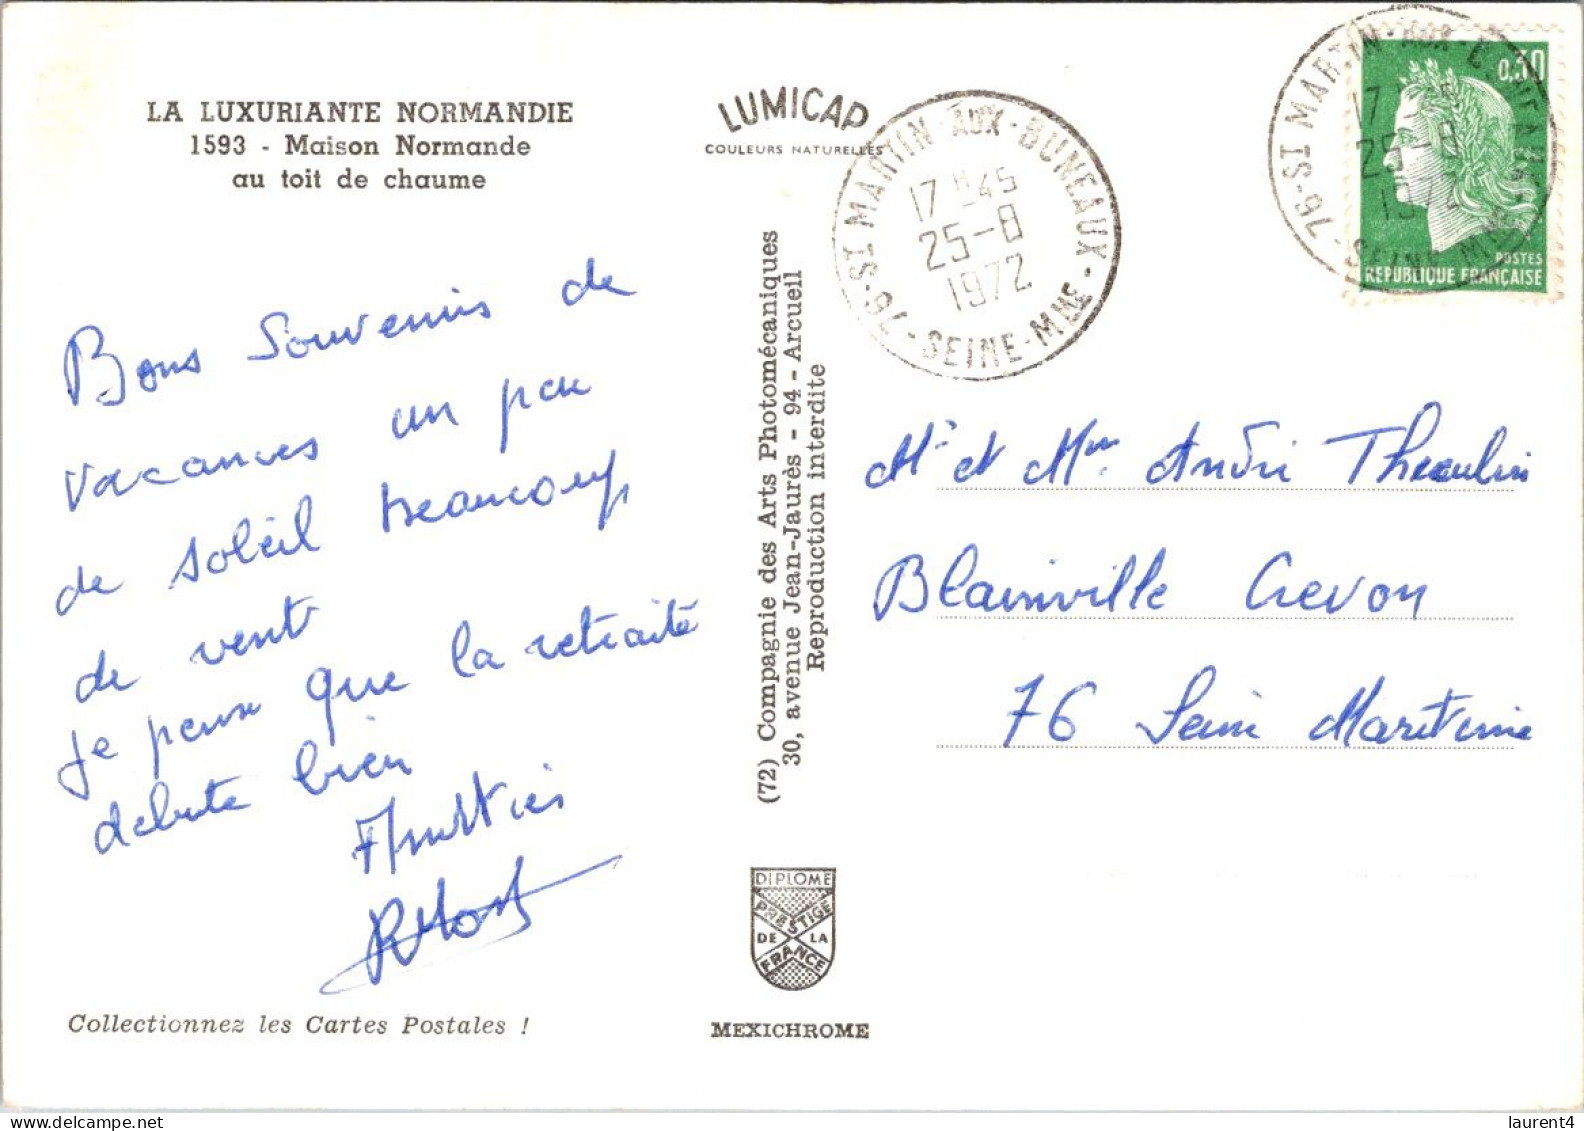 LA LUXURIANTE NORMANDIE
1593 - Maison Normande
au toit de chaume
Bons Souvenirs de
vacances un peu
de soleil beaucoup
de vent
je pense que la retraite
débute bien
Collectionnez les Cartes Postales !
LUMICAP
COULEURS NATURELLES
(72) Compagnie des Arts Photomécaniques
30, avenue Jean-Jaurès - 94 - Arcueil
Reproduction interdite
DIPLOME
PRESTIGE
DE LA
FRANCE
MEXICHROME
76-ST MARTIN-AUX-BUNEAUX-
17H45
25-8
1972
-SEINE-MME
0,30
POSTES
REPUBLIQUE FRANÇAISE
76-ST MARTIN-AUX-BUNEAUX-
17H45
25-8
1972
-SEINE-MME
Mr et Mme André
Blainville Crevon
76 Seine Maritime
laurent4